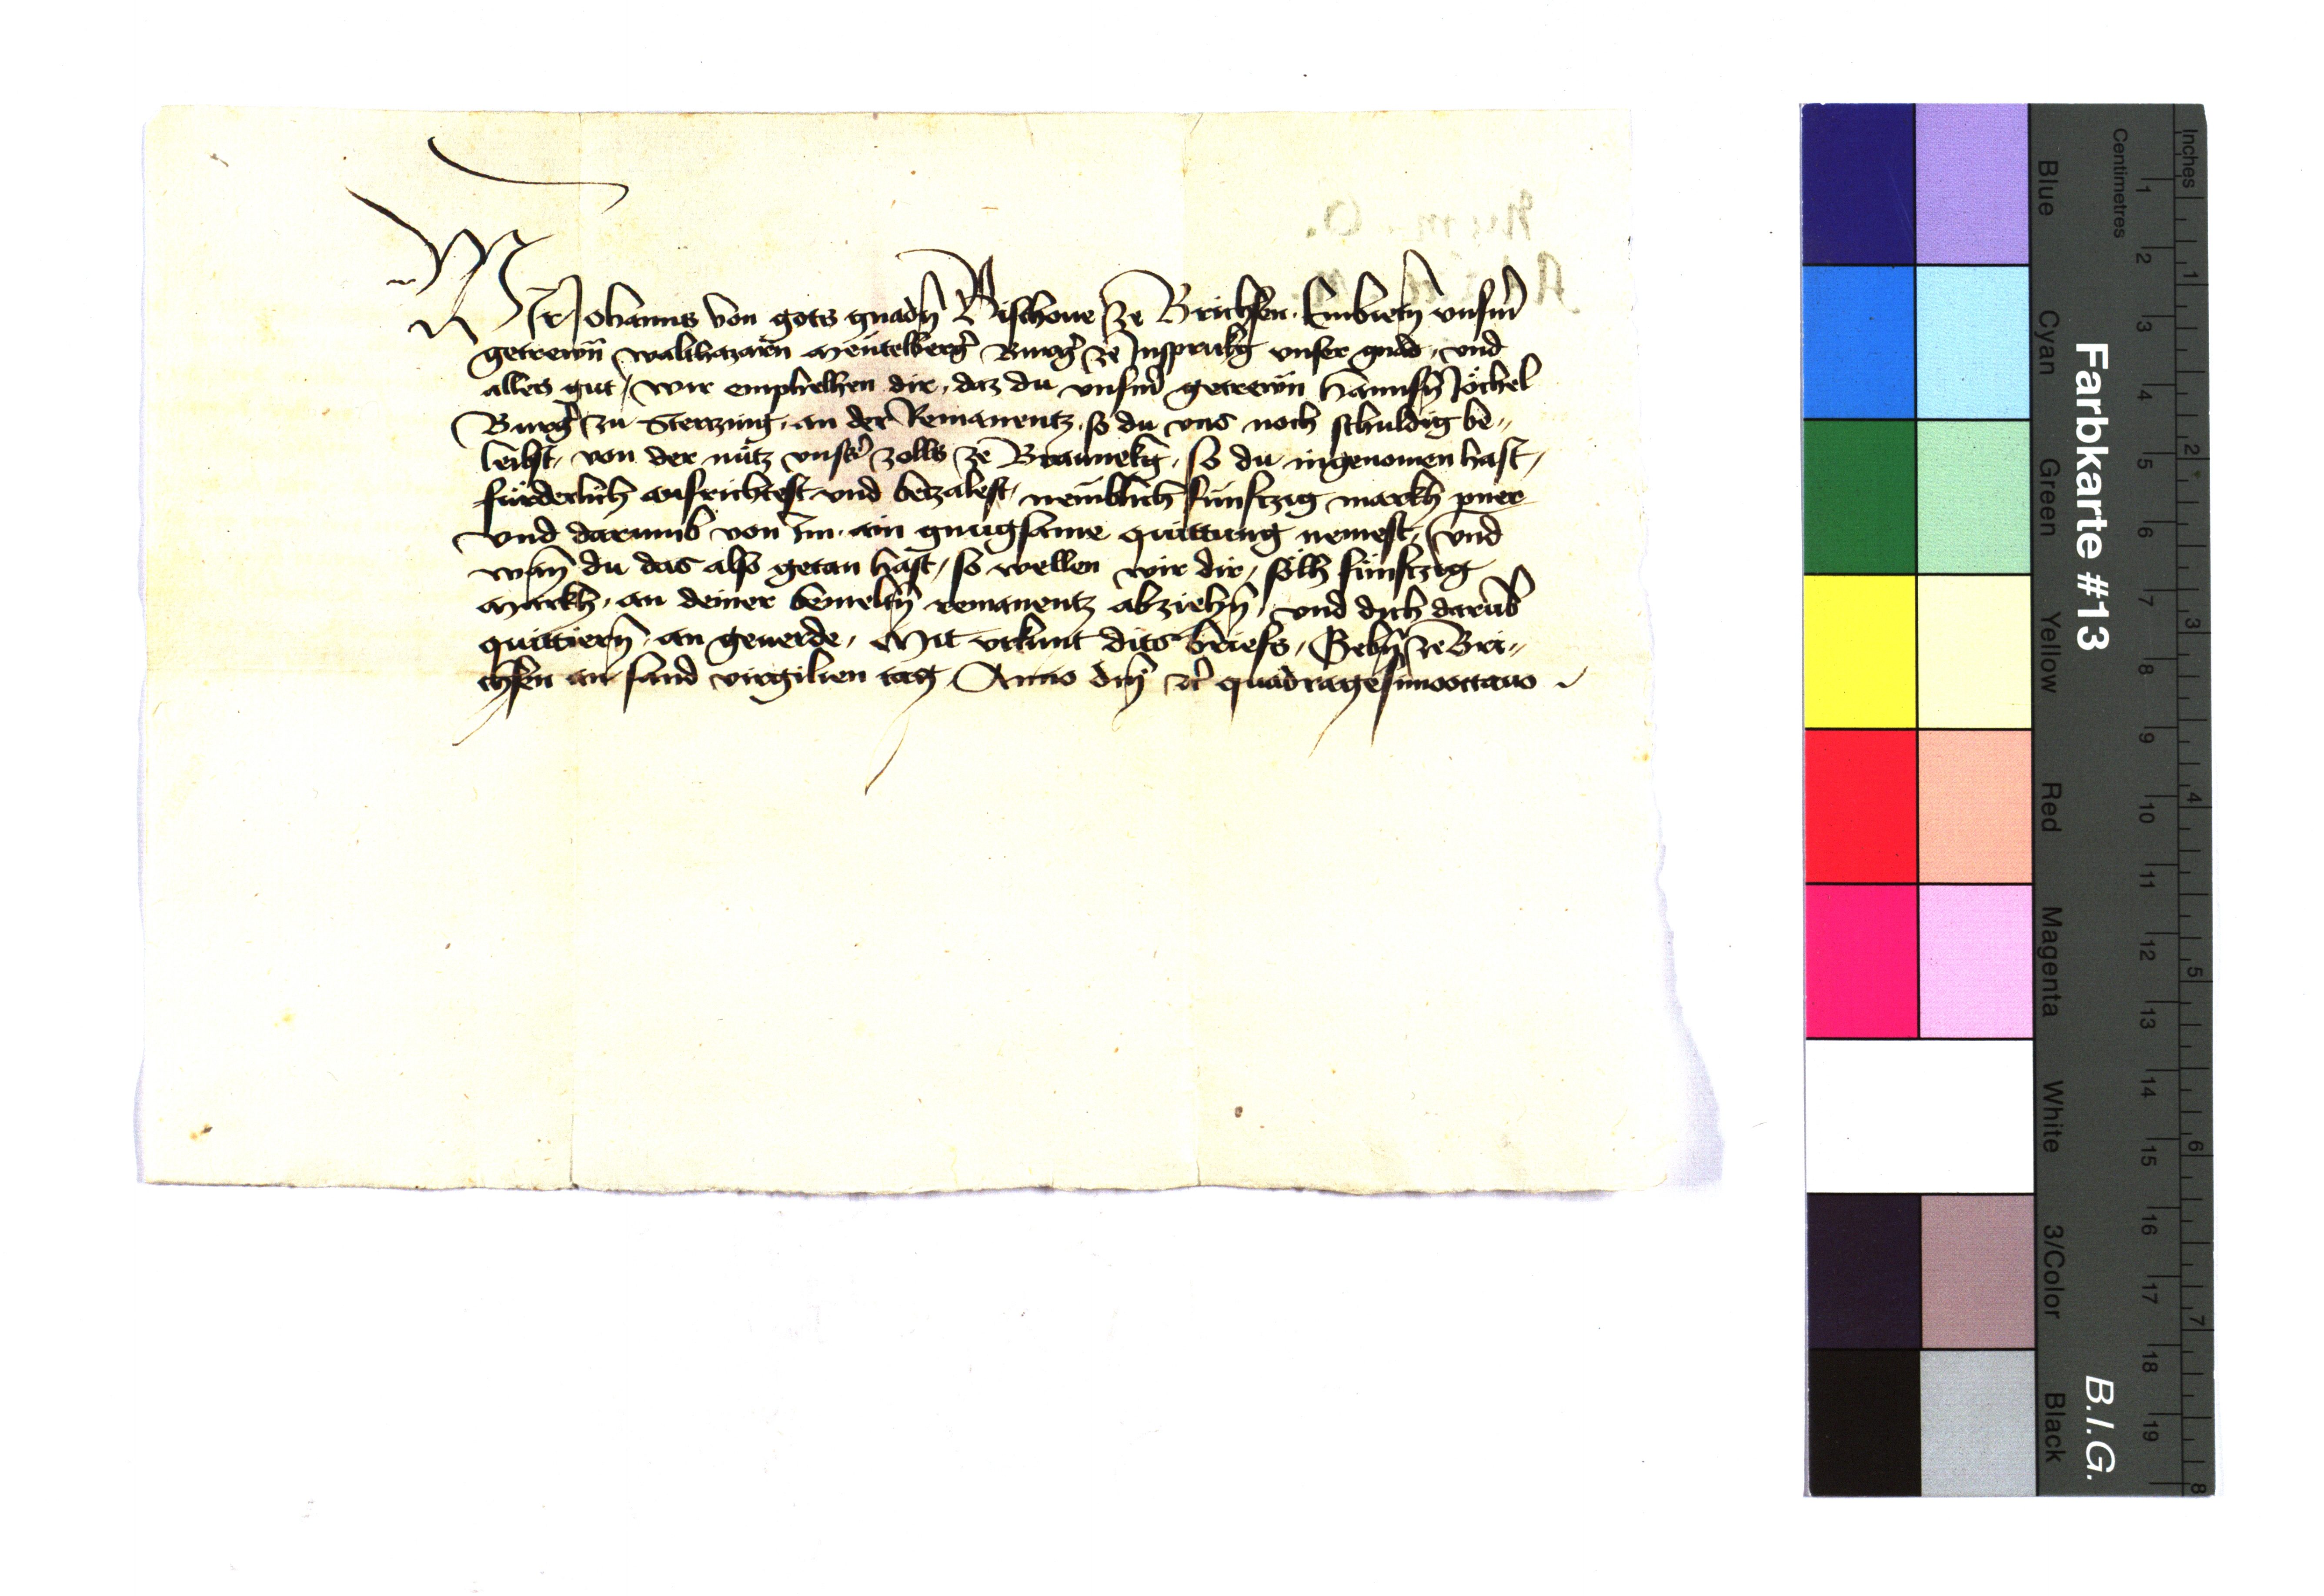 Wir Johanns von gots gnadn̄ Bischoue ze Brichsen. Embietn̄ vnserm̄
getrewn̄ walthazarn Mentelberg̾ Burg̾ ze Insprukg vnser gnad, vnd
alles gut / wir emphelhen dir, daz du vnserm̄ getrewn̄ Hannsn̄ Jöchel
Burg̾ zu Sterzing, an der Remanentz, so du vns noch schuldig be„
leibst, von der nütz vns̾s zolls ze Braunekg, so du ingenomen hast,
fürderlich ausrichtest vnd betzalest, nemblich fünftzig markh pner
vnd darumb von im ain gnugsame quittung nemest, vnd
wan̄ du das also getan hast, so wellen wir dir, sölh fünftzig
Markh, an deiner bemeltn̄ remanentz abziehn̄, vnd dich darub̄
quittiern̄ an geuerde, Mit vrkunt dits briefs, Gebn̄ ze Bri„
chsen an sand virgilien tag, Anno dn̄i etc̾ quadragesimooctauo
Farbkarte #13
B.I.G.
Inches
Centimetres
1 2 3 4 5 6 7 8 9 10 11 12 13 14 15 16 17 18 19
1 2 3 4 5 6 7 8
Blue Cyan Green Yellow Red Magenta White 3/Color Black